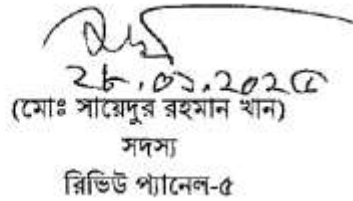 ২৮.০১.২০২৫
(মোঃ সায়েদুর রহমান খান)
সদস্য
রিভিউ প্যানেল-৫